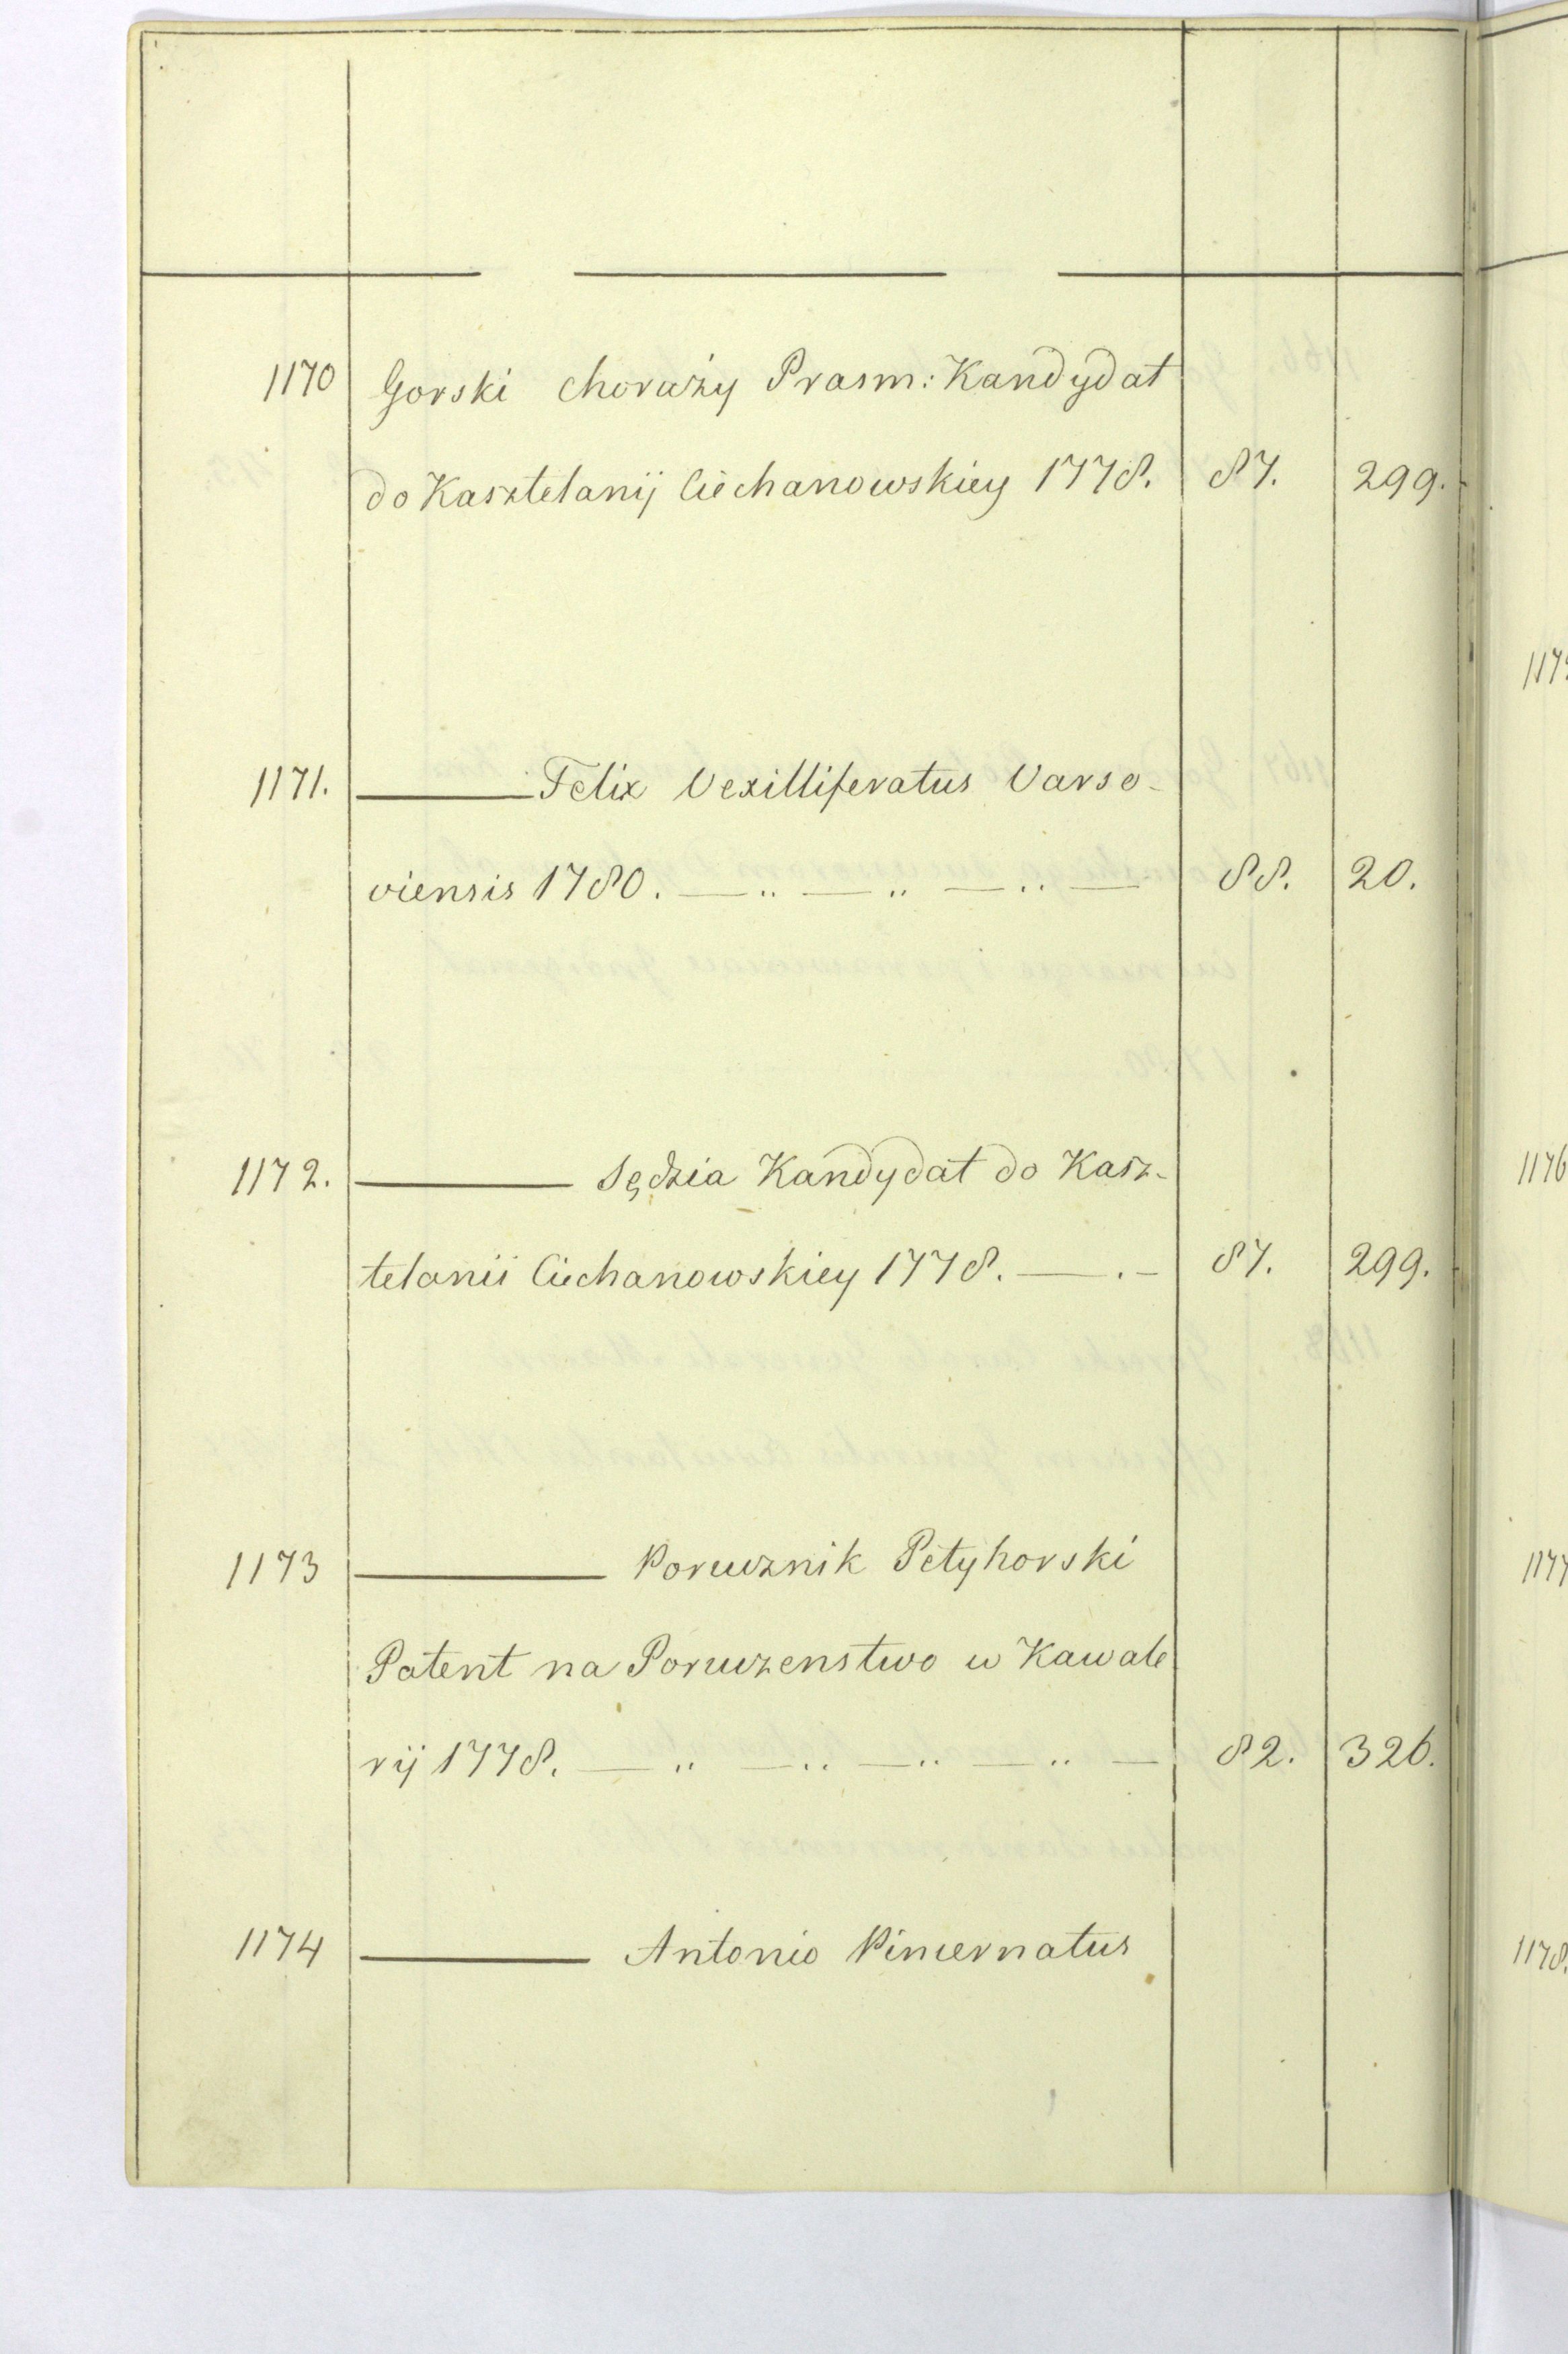 1170 Gorski chorąży Prasm: Kandydat
do Kasztelanij Ciechanowskiey 1778. 87. 299.
1171. ——— Felix Vexilliferatus Varso-
viensis 1780. — „ — „ — „ — 88. 20.
1172. ——— Sędzia Kandydat do Kasz-
telanii Ciechanowskiey 1778. — . — 87. 299.
1173 ——— Porucznik Petyhorski
Patent na Poruczenstwo w Kawale
rij 1778. — „ — „ — „ — „ — 82. 326.
1174 ——— Antonio Pincernatus
1176
1177
1178.